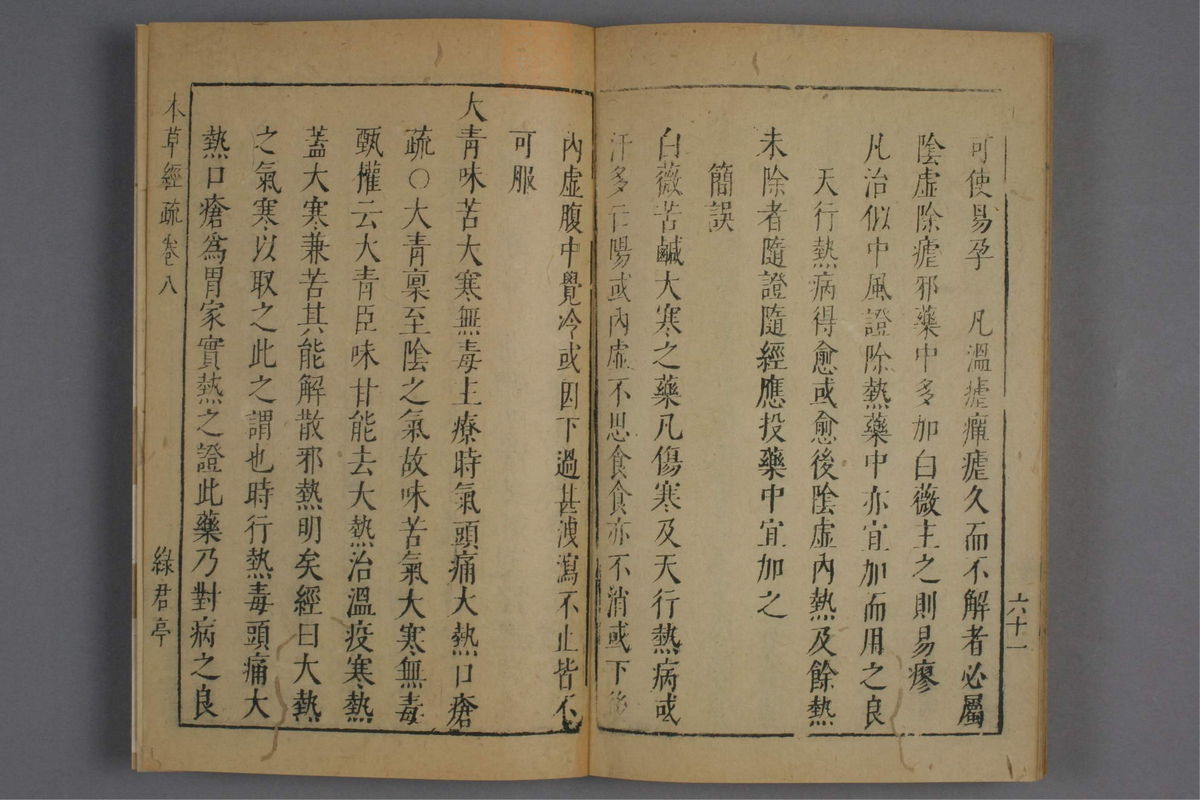 可使易孕　凡溫瘧癉瘧久而不解者必屬
陰虛除瘧邪藥中多加白薇主之則易瘳
凡治似中風證除熱藥中亦宜加而用之良
天行熱病得愈或愈後陰虛內熱及餘熱
未除者隨證隨經應投藥中宜加之
簡誤
白薇苦鹹大寒之藥凡傷寒及天行熱病或
汗多亡陽或內虛不思食食亦不消或下後
內虛腹中覺冷或因下過甚洩瀉不止皆不
可服
大青味苦大寒無毒主療時氣頭痛大熱口瘡
疏○大青稟至陰之氣故味苦氣大寒無毒
甄權云大青臣味甘能去大熱治溫疫寒熱
蓋大寒兼苦其能解散邪熱明矣經曰大熱
之氣寒以取之此之謂也時行熱毒頭痛大
熱口瘡為胃家實熱之證此藥乃對病之良
六十一
本草經疏 卷八
綠君亭